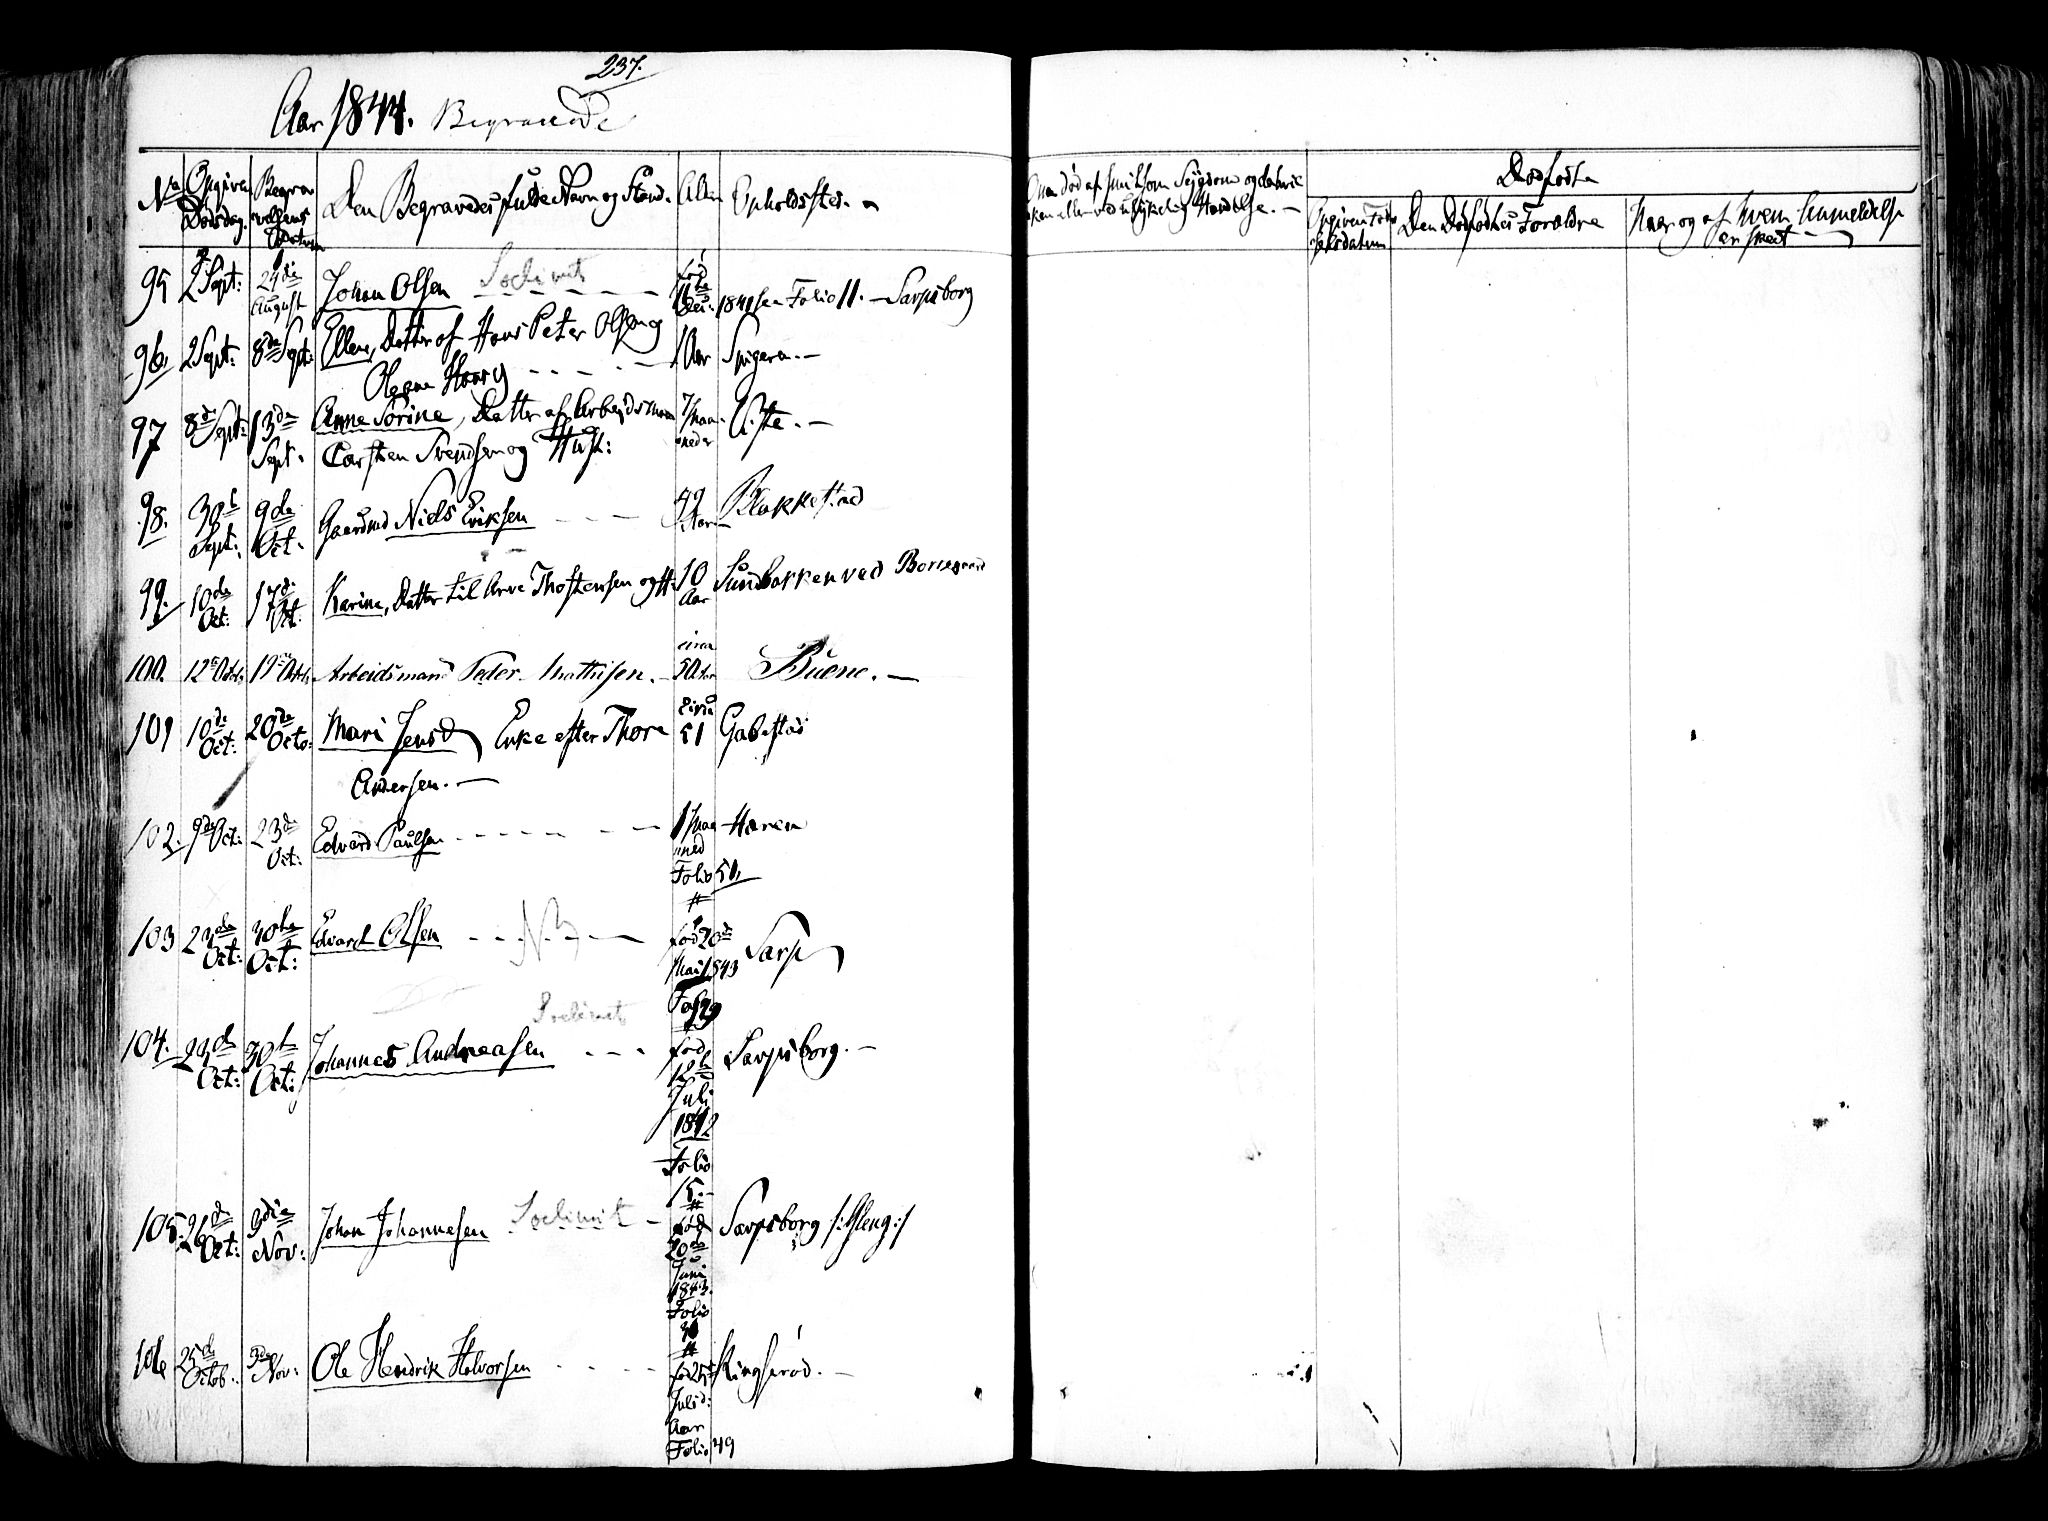 237.
Aar 1844. Begravede
No Opgiven Dødsdag. Begravelsens Datum Den Begravedes fulde Navn og Stand. Alder Opholdsted. Om død af smitsom Sygdom og hvilken eller ved ulykkelig Hændelse. Dødfødte
Opgiven Fødselsdatum Den Dødfødtes Forældre Naar og af hvem Anmeldelse er skeet
95 2 Sept: 29de August Johan Olsen født 11te Dec: 1841 sea Folio 11. Sarpsborg
96. 2 Sept: 8de Sept: Ellen, Datter af Hans Peter Olsen og 1 Aar
Olegne Haarg
97 8de Sept: 13de Sept. Anne Sorine, Datter af Arbeidsmand 7 Maaneder Viste.
Carsten Svendsen og Hust:
98. 30te Sept: 9de Oct. Gaardmd Niels Eriksen 49 Aar Blakkestad
99. 10de Oct: 17de Oct. Karine, Datter til Arve Thostensen og H: 10 Aar Sundbakken ved Borregaard
100. 12te Octob. 19de Octob. Arbeidsmand Peder Mathisen. circa 50 Aar Buene.
101 10de Oct: 20de Octo: Mari Jensd Enke efter Thore circa 51 Gabestad
Andersen.
102. 9de Oct: 23de Oct: Edvard Paulsen 1 Maaned Haren
Folio 51.
103 23de Oct: 30te Oct: Edvard Olsen NB født 20de Mai 1843 Sarp
Fol 29
104. 23de Oct: 30te Oct: Johannes Andreasen født 12te Juli 1842 Sarpsborg.
Folio 15.
105. 26de Oct: 3die Nov: Johan Johannesen født 20de Juni 1843. Sarpsborg
Folio
106 25de Octob. 3die Nov: Ole Hendrik Halvorsen født 25de Juli d: Aar Ringserød.
Folio 49